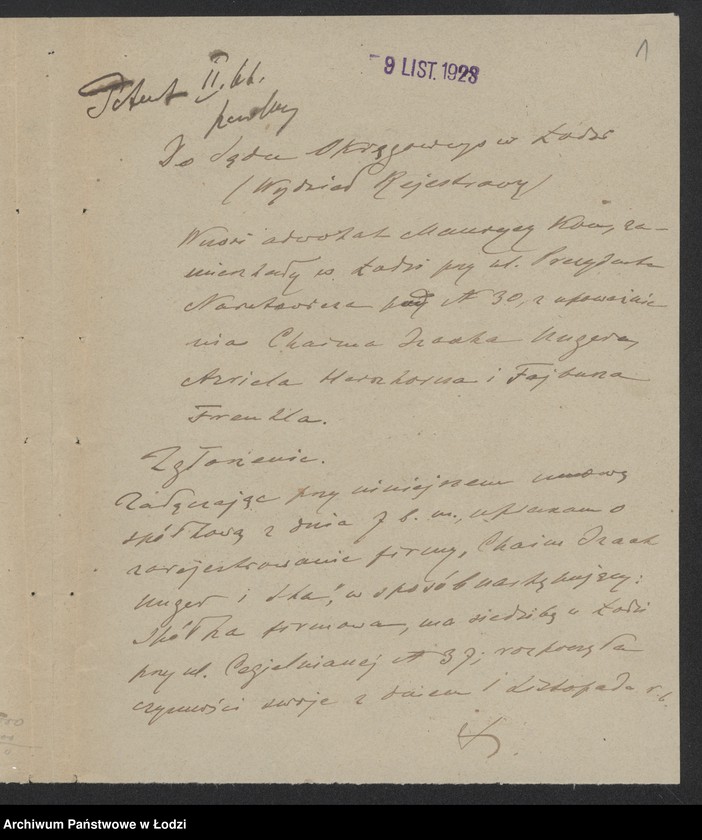 1
9 LIST. 1923
Patent II. kk.
Do Sądu Okręgowego w Łodzi
(Wydział Rejestrowy)
Wnosi adwokat Maurycy Kon, za-
mieszkały w Łodzi przy ul. Prezydenta
Narutowicza pod № 30, z upoważnie
nia Chaima Izaaka Ungera,
Azriela Herszkorna i Fajbusza
Frenkla.
Zgłoszenie.
Załączając przy niniejszem umowę
spółkową z dnia 7 b. m., upraszam o
zarejestrowanie firmy "Chaim Izaak
Unger i S-ka", w sposób następujący:
Spółka firmowa, ma siedzibę w Łodzi
przy ul. Cegielnianej № 37; rozpoczęła
czynności swoje z dniem 1 Listopada r. b.
Archiwum Państwowe w Łodzi